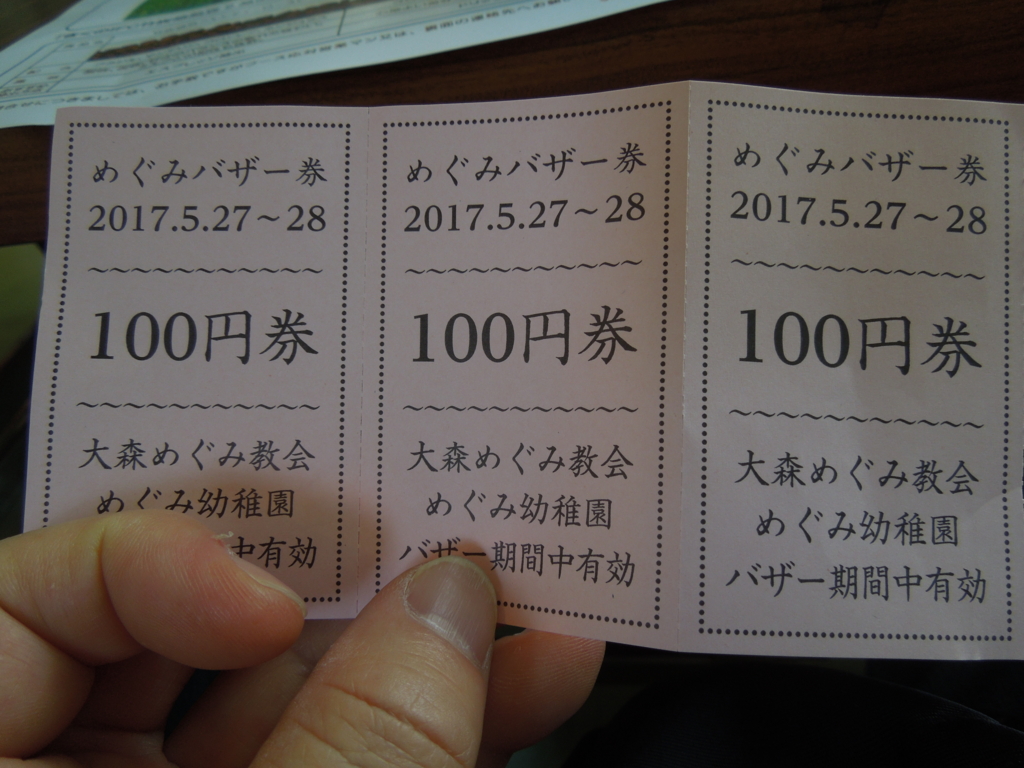 めぐみバザー券
2017.5.27～28
～～～～～～～～～～～
100円券
～～～～～～～～～～～
大森めぐみ教会
めぐみ幼稚園
中有効
めぐみバザー券
2017.5.27～28
～～～～～～～～～～～
100円券
～～～～～～～～～～～
大森めぐみ教会
めぐみ幼稚園
バザー期間中有効
めぐみバザー券
2017.5.27～28
～～～～～～～～～～～
100円券
～～～～～～～～～～～
大森めぐみ教会
めぐみ幼稚園
バザー期間中有効